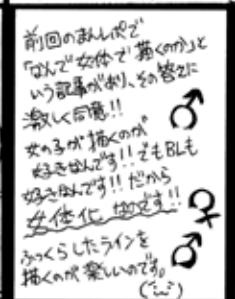 前回のまんレポで
「なんで女体で描くのか」と
いう記事があり、その答えに
激しく同意!!
女の子が描くのが
好きなんです!!でもBLも
好きなんです!!だから
女体化なのです!!
ふっくらしたラインを
描くのが楽しいのです。
♂
♀
♂